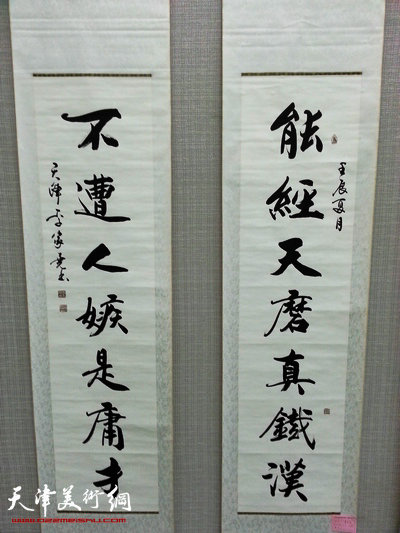 壬辰夏月
能經天磨真鐵漢
不遭人嫉是庸才
天津美術網
www.022meishu.com